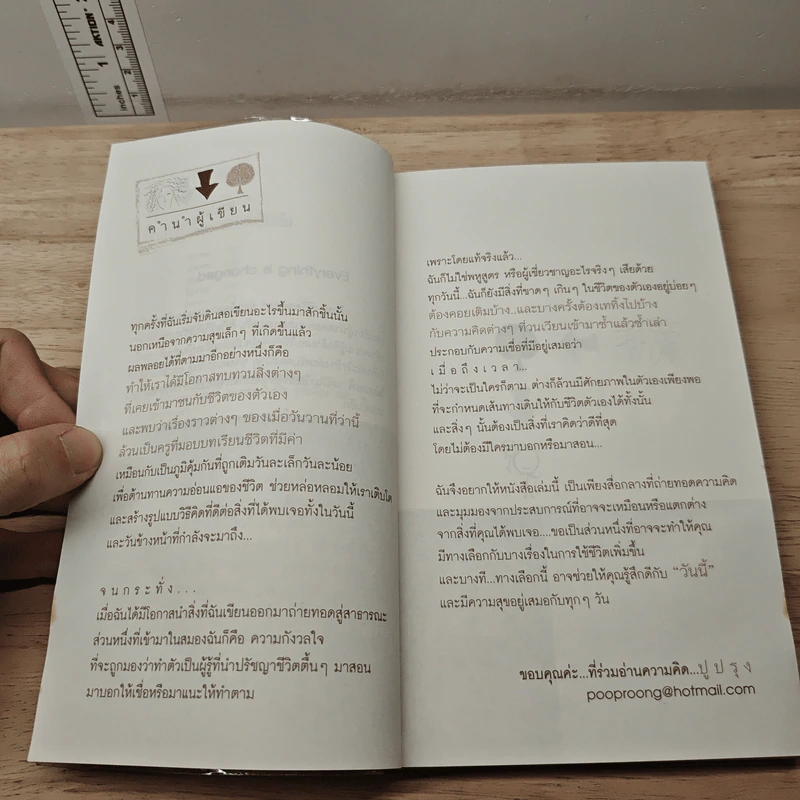 inches
1
2
3
4
AKTION
คำนำผู้เขียน
ทุกครั้งที่ฉันเริ่มจับดินสอเขียนอะไรขึ้นมาสักชิ้นนั้น
นอกเหนือจากความสุขเล็กๆ ที่เกิดขึ้นแล้ว
ผลพลอยได้ที่ตามมาอีกอย่างหนึ่งก็คือ
ทำให้เราได้มีโอกาสทบทวนสิ่งต่างๆ
ที่เคยเข้ามาชนกับชีวิตของตัวเอง
และพบว่าเรื่องราวต่างๆ ของเมื่อวันวานที่ว่านี้
ล้วนเป็นครูที่มอบบทเรียนชีวิตที่มีค่า
เหมือนกับเป็นภูมิคุ้มกันที่ถูกเติมวันละเล็กวันละน้อย
เพื่อต้านทานความอ่อนแอของชีวิต ช่วยหล่อหลอมให้เราเติบโต
และสร้างรูปแบบวิธีคิดที่ดีต่อสิ่งที่ได้พบเจอทั้งในวันนี้
และวันข้างหน้าที่กำลังจะมาถึง...
จนกระทั่ง...
เมื่อฉันได้มีโอกาสนำสิ่งที่ฉันเขียนออกมาถ่ายทอดสู่สาธารณะ
ส่วนหนึ่งที่เข้ามาในสมองฉันก็คือ ความกังวลใจ
ที่จะถูกมองว่าทำตัวเป็นผู้รู้ที่นำปรัชญาชีวิตตื้นๆ มาสอน
มาบอกให้เชื่อหรือมาแนะให้ทำตาม
เพราะโดยแท้จริงแล้ว...
ฉันก็ไม่ใช่พหูสูตร หรือผู้เชี่ยวชาญอะไรจริงๆ เสียด้วย
ทุกวันนี้...ฉันก็ยังมีสิ่งที่ขาดๆ เกินๆ ในชีวิตของตัวเองอยู่บ่อยๆ
ต้องคอยเติมบ้าง..และบางครั้งต้องเททิ้งไปบ้าง
กับความคิดต่างๆ ที่วนเวียนเข้ามาซ้ำแล้วซ้ำเล่า
ประกอบกับความเชื่อที่มีอยู่เสมอว่า
เมื่อถึงเวลา...
ไม่ว่าจะเป็นใครก็ตาม ต่างก็ล้วนมีศักยภาพในตัวเองเพียงพอ
ที่จะกำหนดเส้นทางเดินให้กับชีวิตตัวเองได้ทั้งนั้น
และสิ่งๆ นั้นต้องเป็นสิ่งที่เราคิดว่าดีที่สุด
โดยไม่ต้องมีใครมาบอกหรือมาสอน...
ฉันจึงอยากให้หนังสือเล่มนี้ เป็นเพียงสื่อกลางที่ถ่ายทอดความคิด
และมุมมองจากประสบการณ์ที่อาจจะเหมือนหรือแตกต่าง
จากสิ่งที่คุณได้พบเจอ....ขอเป็นส่วนหนึ่งที่อาจจะทำให้คุณ
มีทางเลือกกับบางเรื่องในการใช้ชีวิตเพิ่มขึ้น
และบางที...ทางเลือกนี้ อาจช่วยให้คุณรู้สึกดีกับ "วันนี้"
และมีความสุขอยู่เสมอกับทุกๆ วัน
ขอบคุณค่ะ...ที่ร่วมอ่านความคิด...ปูปรุง
pooproong@hotmail.com